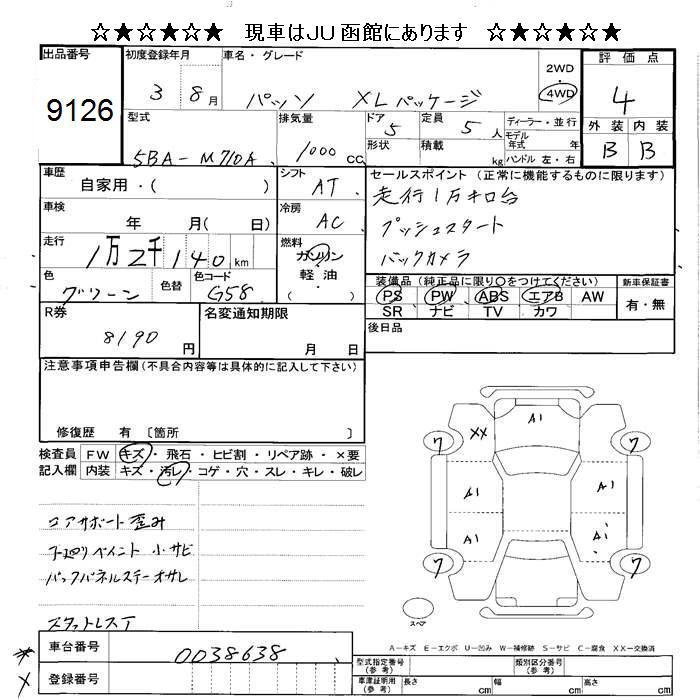 ☆★☆★☆ 現車はJU函館にあります ☆★☆★☆
出品番号
9126
初度登録年月
3 8月
車名・グレード
パッソ XLパッケージ
2WD
・
4WD
評価点
4
外装 内装
B B
型式
5BA-M710A
排気量
1000cc
ドア
5
形状
定員
5人
積載
kg
ディーラー・並行
モデル年式 年
ハンドル 左・右
車歴
自家用・( )
シフト
AT
セールスポイント(正常に機能するものに限ります)
走行1万キロ台
プッシュスタート
バックカメラ
車検
年 月( 日)
冷房
AC
走行
1万2千140km
燃料
ガソリン
軽油
・( )
色
グリーン
色替
色コード
G58
装備品(純正品に限り○をつけてください)
PS PW ABS エアB AW
SR ナビ TV カワ
新車保証書
有・無
R券
8190円
名変通知期限
月 日
後日品
注意事項申告欄(不具合内容等は具体的に記入して下さい)
修復歴 有 〔箇所 〕
検査員記入欄
FW キズ・飛石・ヒビ割・リペア跡・×要
内装 キズ・汚レ・コゲ・穴・スレ・キレ・破レ
コアサポート歪み
下廻りペイント 小サビ
バックパネルステーオサレ
スタットレスT
XX A1
7 7
A1 A1
A1 A1
7 7
スペア
A-キズ E-エクボ U-凹み W-補修跡 S-サビ C-腐食 XX-交換済
車台番号
0038638
登録番号
型式指定番号(参考)
類別区分番号(参考)
車庫証明用(参考)
長さ cm
幅 cm
高さ cm